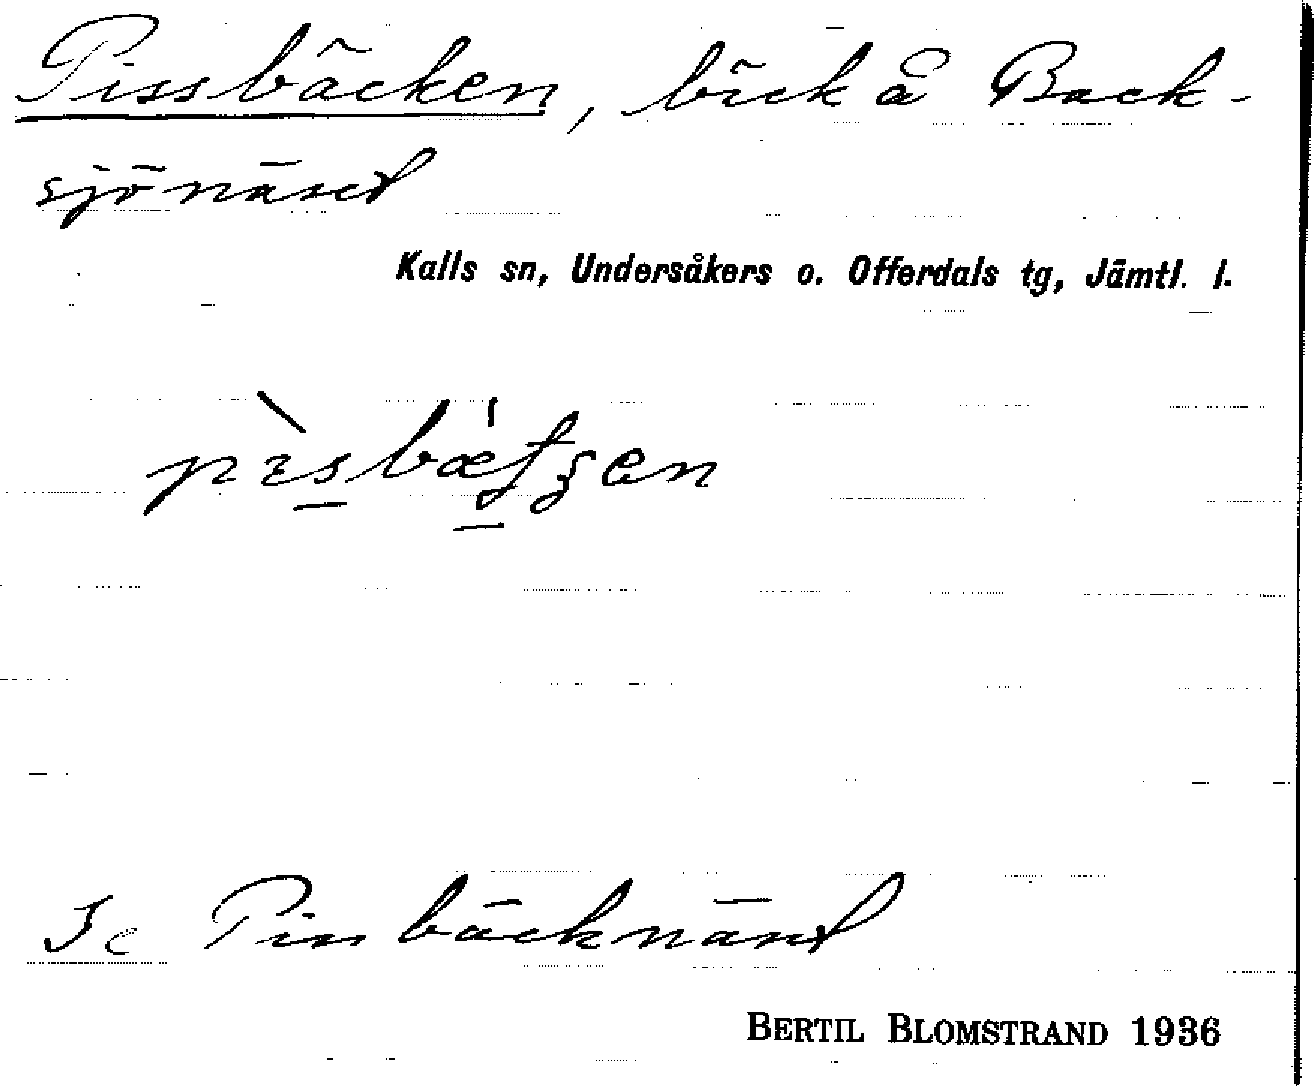 Pissbäcken, bäck å Back-
sjönäset
Kalls sn, Undersåkers o. Offerdals tg, Jämtl. l.
Se Pissbäcknäset
BERTIL BLOMSTRAND 1936